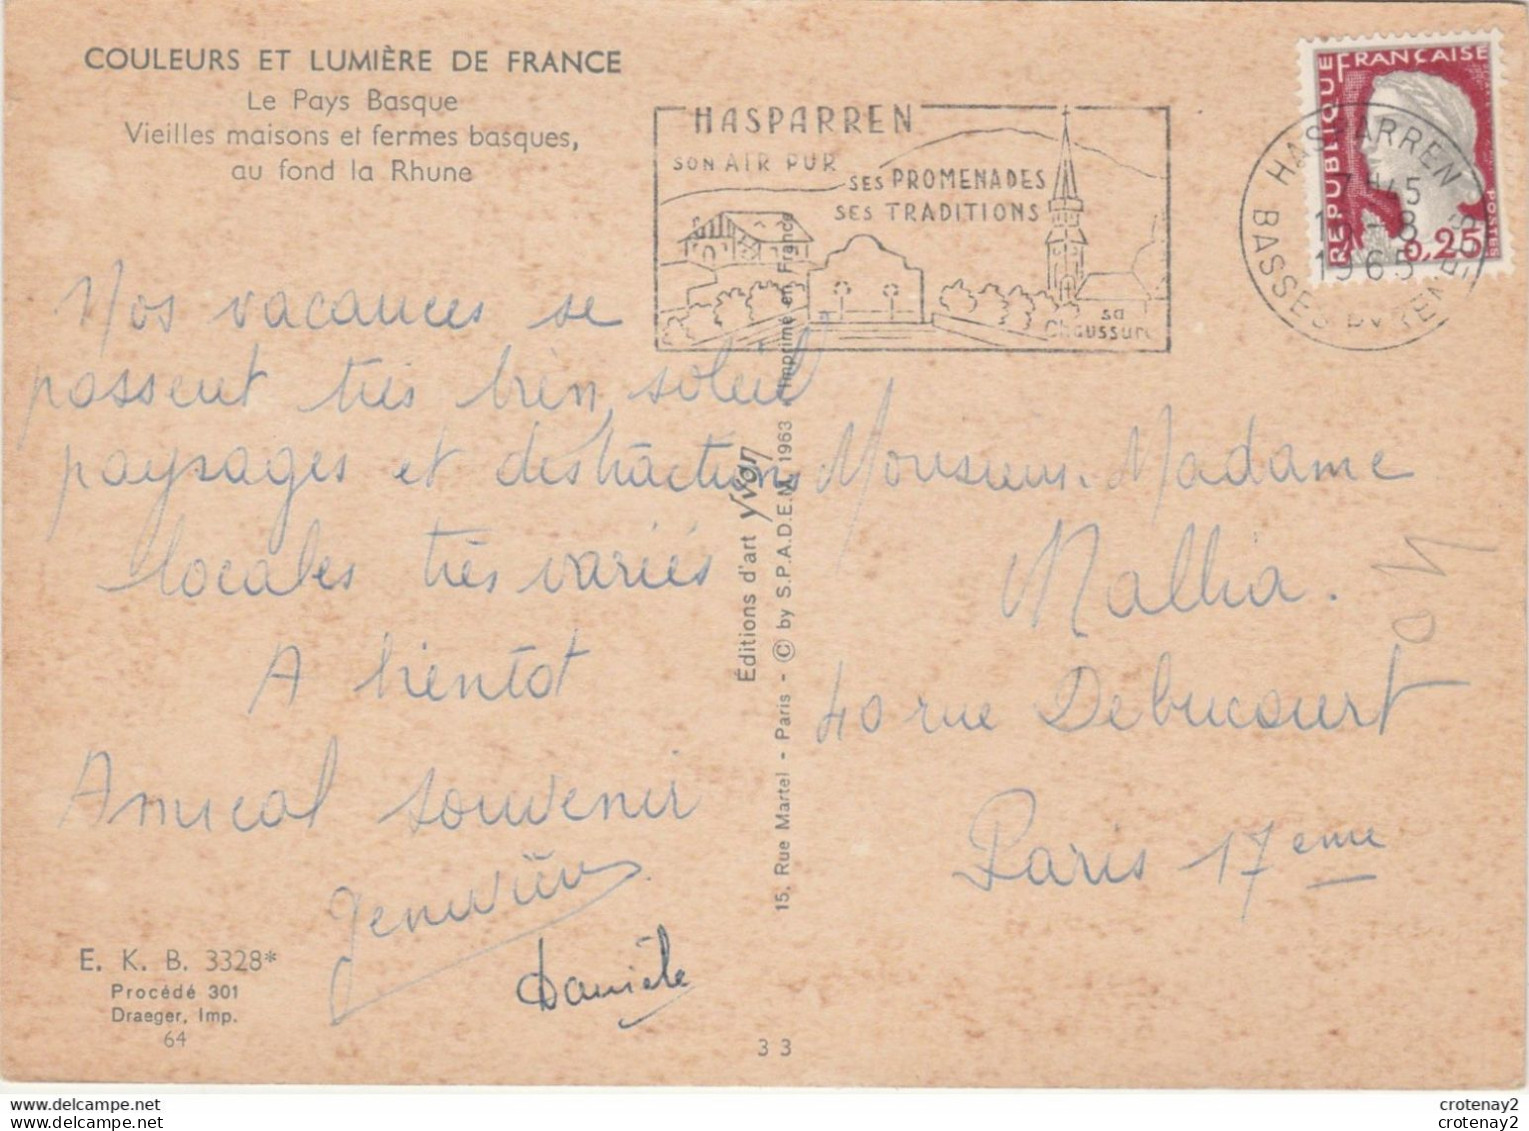 COULEURS ET LUMIÈRE DE FRANCE
Le Pays Basque
Vieilles maisons et fermes basques,
au fond la Rhune
HASPARREN
SON AIR PUR
SES PROMENADES
SES TRADITIONS
sa
Chaussure
RÉPUBLIQUE FRANÇAISE
POSTES
0,25
HASPARREN
1965
Nos vacances se
passent très bien, soleil
paysages et distractions
locales très variés
A bientot
Amical souvenir
Danièle
Monsieur. Madame
Mallia.
40 rue Debucourt
Paris 17eme
Éditions d'art Yvon
15, Rue Martel - Paris - © by S.P.A.D.E.M. 1963 - Imprimé en France
E. K. B. 3328*
Procédé 301
Draeger, Imp.
64
33
delcampe.net
delcampe.net
crotenay2
crotenay2